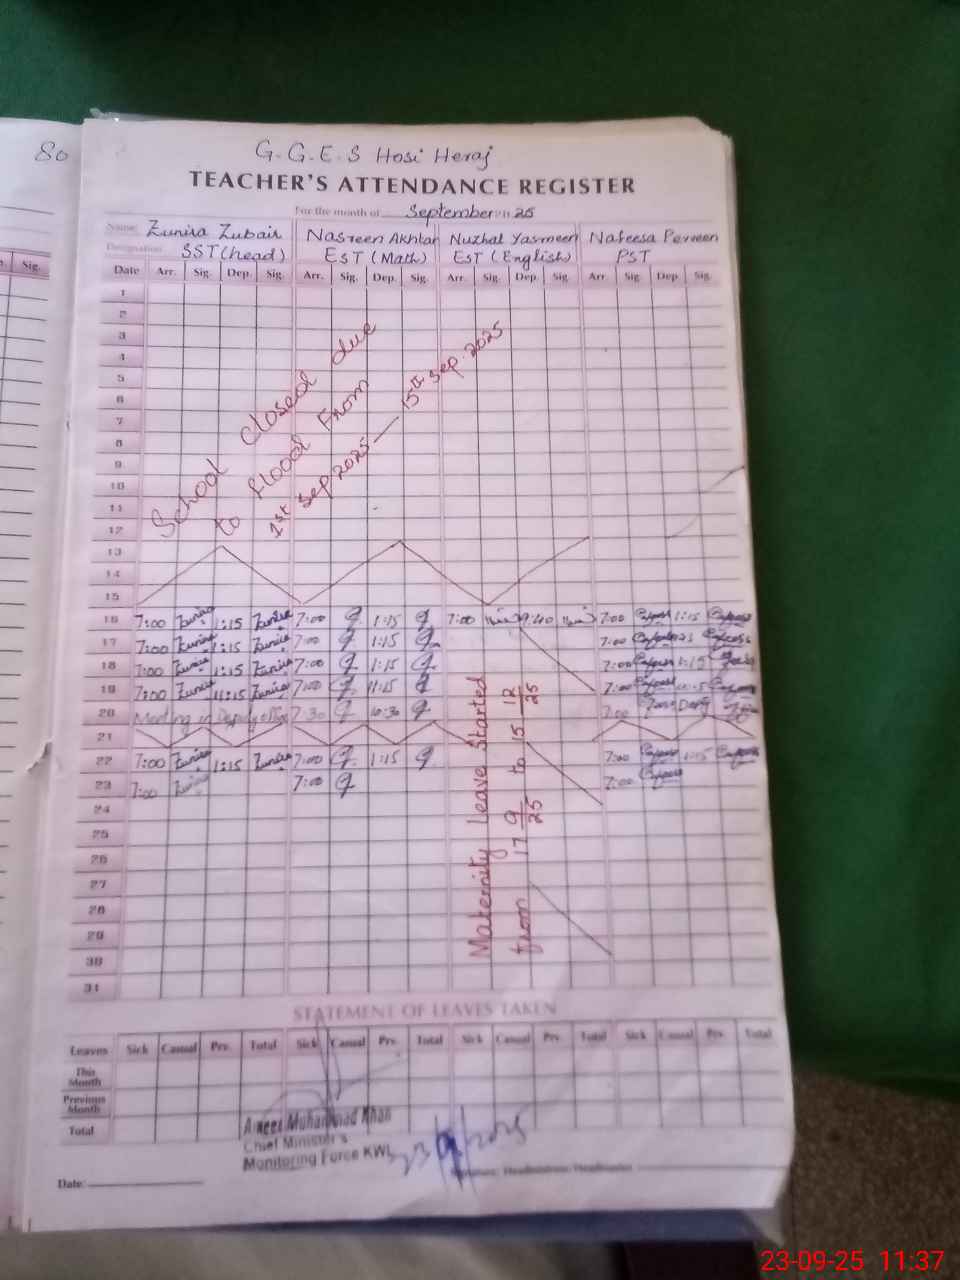 80
G.G.E.S Hosi Heraj
TEACHER'S ATTENDANCE REGISTER
For the month of September 25
Name: Zunira Zubair Nasreen Akhtar Nuzhat Yasmeen Nafeesa Perveen
Designation SST (head) EST (Math) EST (English) PST
Sig.
Date Arr. Sig. Dep. Sig. Arr. Sig. Dep. Sig. Arr. Sig. Dep. Sig. Arr. Sig. Dep. Sig.
1
2
3
4
5
6
7
8
9
10
11
12
13
14
15
School closed due
to flood From
1st Sep 2025 — 15th Sep. 2025
16 7:00 Zunira 1:15 Zunira 7:00 1:15 7:00 9:40 7:00 1:15
17 7:00 Zunira 1:15 Zunira 7:00 1:15 7:00
18 7:00 Zunira 1:15 Zunira 7:00 1:15 7:00 1:15
19 7:00 Zunira 11:15 Zunira 7:00 11:15 7:00
20 Meeting in Deputy office 7:30 10:30 7:00
21
22 7:00 Zunira 1:15 Zunira 7:00 1:15 7:00 1:15
23 7:00 Zunira 7:00 7:00
24
25
26
27
28
29
30
31
Maternity Leave Started
from 17 9/25 to 15 12/25
STATEMENT OF LEAVES TAKEN
Leaves Sick Casual Prv. Total Sick Casual Prv. Total Sick Casual Prv. Total Sick Casual Prv. Total
This Month
Previous Month
Total
Ameer Muhammad Khan
Chief Minister's
Monitoring Force KWL
23/9/2025
Signature: Headmistress/Headmaster
Date:
23-09-25 11:37